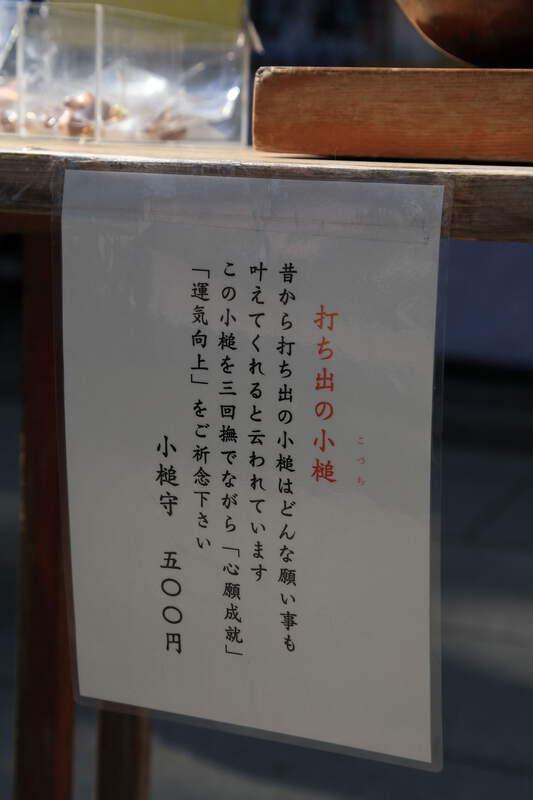 打ち出の小槌
こづち
昔から打ち出の小槌はどんな願い事も
叶えてくれると云われています
この小槌を三回撫でながら「心願成就」
「運気向上」をご祈念下さい
小槌守 五〇〇円